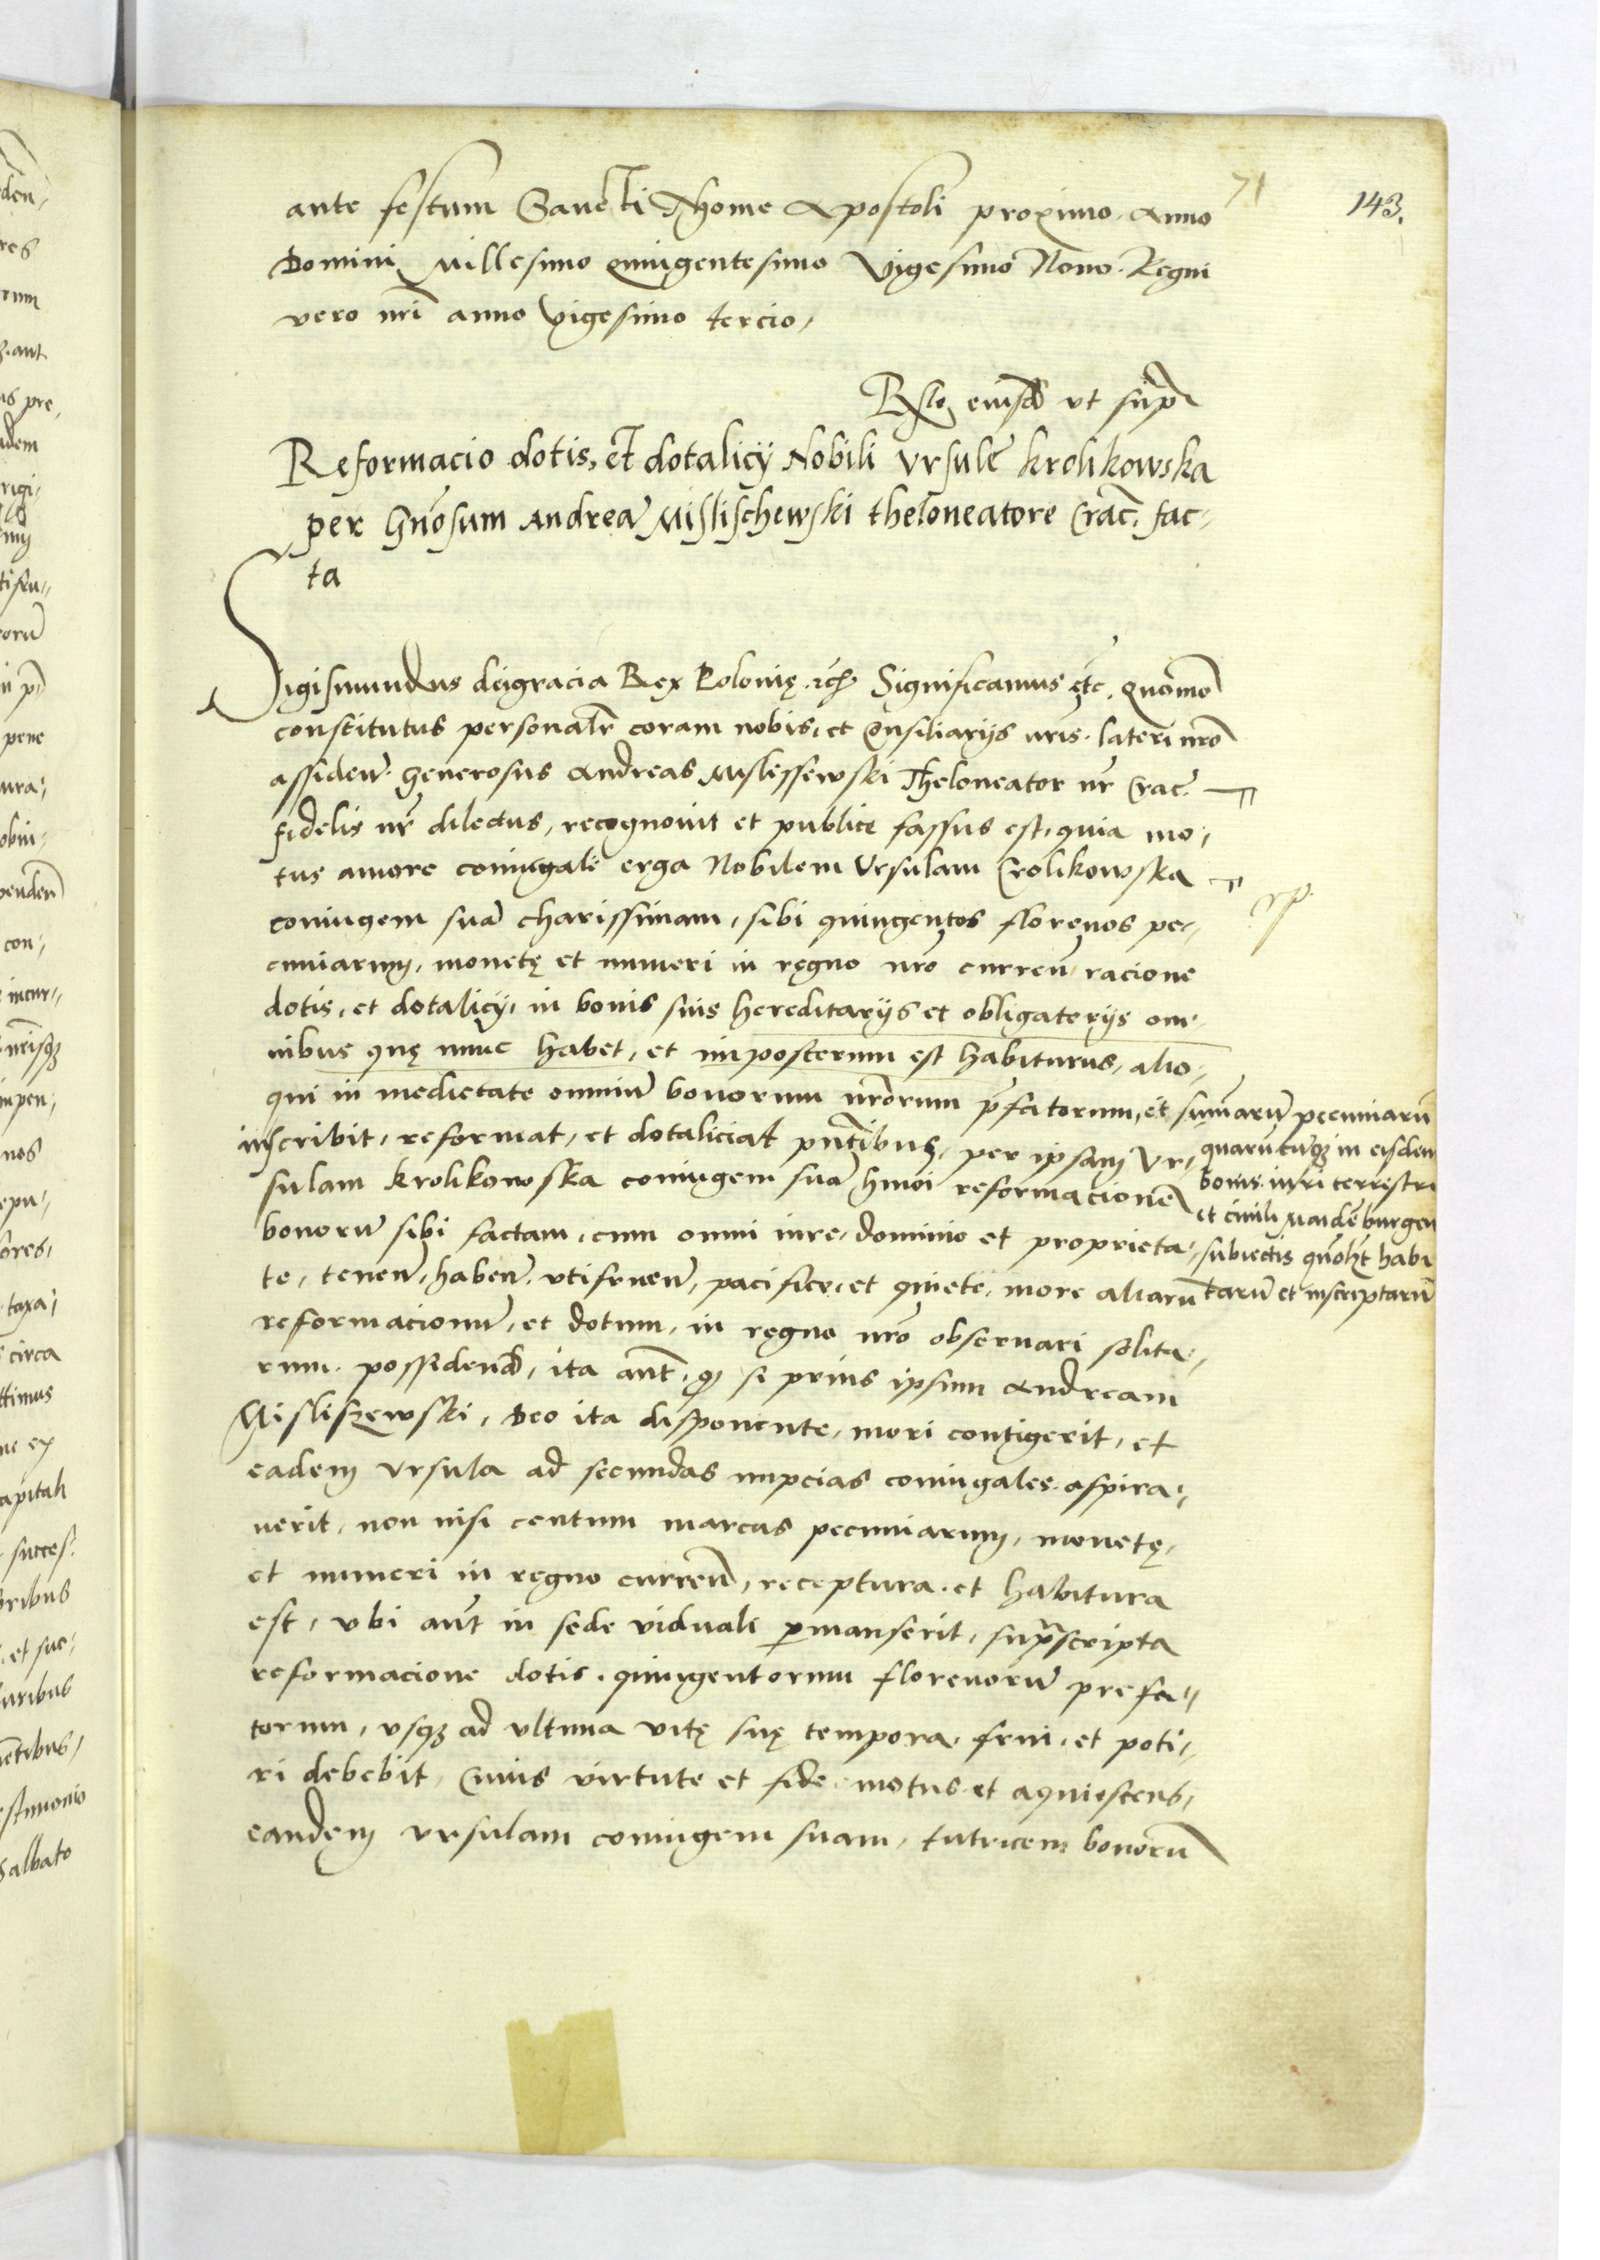 71
143.
ante festum Sancti Thome Apostoli proximo. Anno
Domini Millesimo Quingentesimo Vigesimo Nono. Regni
vero nri anno Vigesimo tercio,
Rlo eiusd ut supra
Reformacio dotis, et dotalicij Nobili Ursule Krolikowska
per Gnosum Andrea Mislischewski theloneatore Crac. fac-
ta
Sigismundus dei gracia Rex Polonię. Significamus etc. quomo
constitutus personalr coram nobis, et Consiliarijs nris. lateri nro
assiden. Generosus Andreas Mislissewski Theloneator nr Crac.
fidelis nr dilectus, recognovit et publice fassus est, quia mo-
tus amore coniugali erga Nobilem Ursulam Crolikowska
coniugem sua charissimam, sibi quingentos florenos pe-
cuniarum, monetę et numeri in ręgno nro curren. racione
dotis, et dotalicij, in bonis suis hereditarijs et obligatorijs om-
nibus quę nunc habet, et imposterum est habiturus, alio-
qui in medietate omniu bonorum nrorum pfatorum, et sumaru pecuniaru
quarucuq in eisdem
bonis iuri terrestri
et civili Maideburgen
subiectis quolt habi
taru et inscriptaru
inscribit, reformat, et dotaliciat pntibus, per ipsam Ur-
sulam Krolikowska coniugem sua hmoi reformacione
bonoru sibi factam, cum omni iure, dominio et proprieta-
te, tenen, haben, utifruen, pacifice, et quiete, more aliaru
reformacionu, et dotum, in ręgno nro observari solita-
rum. possidend, ita aut, q si prius ipsum Andream
Misliszewski, Deo ita disponente, mori contigerit, et
eadem Ursula ad secundas nupcias coniugales aspira-
verit, non nisi centum marcas pecuniarum, monetę,
et numeri in regno curren, receptura et habitura
est, ubi aut in sede viduali pmanserit, suprascripta
reformacione dotis, quingentorum florenoru prefa-
torum, usq ad ultima vitę suę tempora, frui, et poti-
ri debebit, Cuius virtute et fide motus et aquiescens,
eandem Ursulam coniugem suam, tutricem bonoru